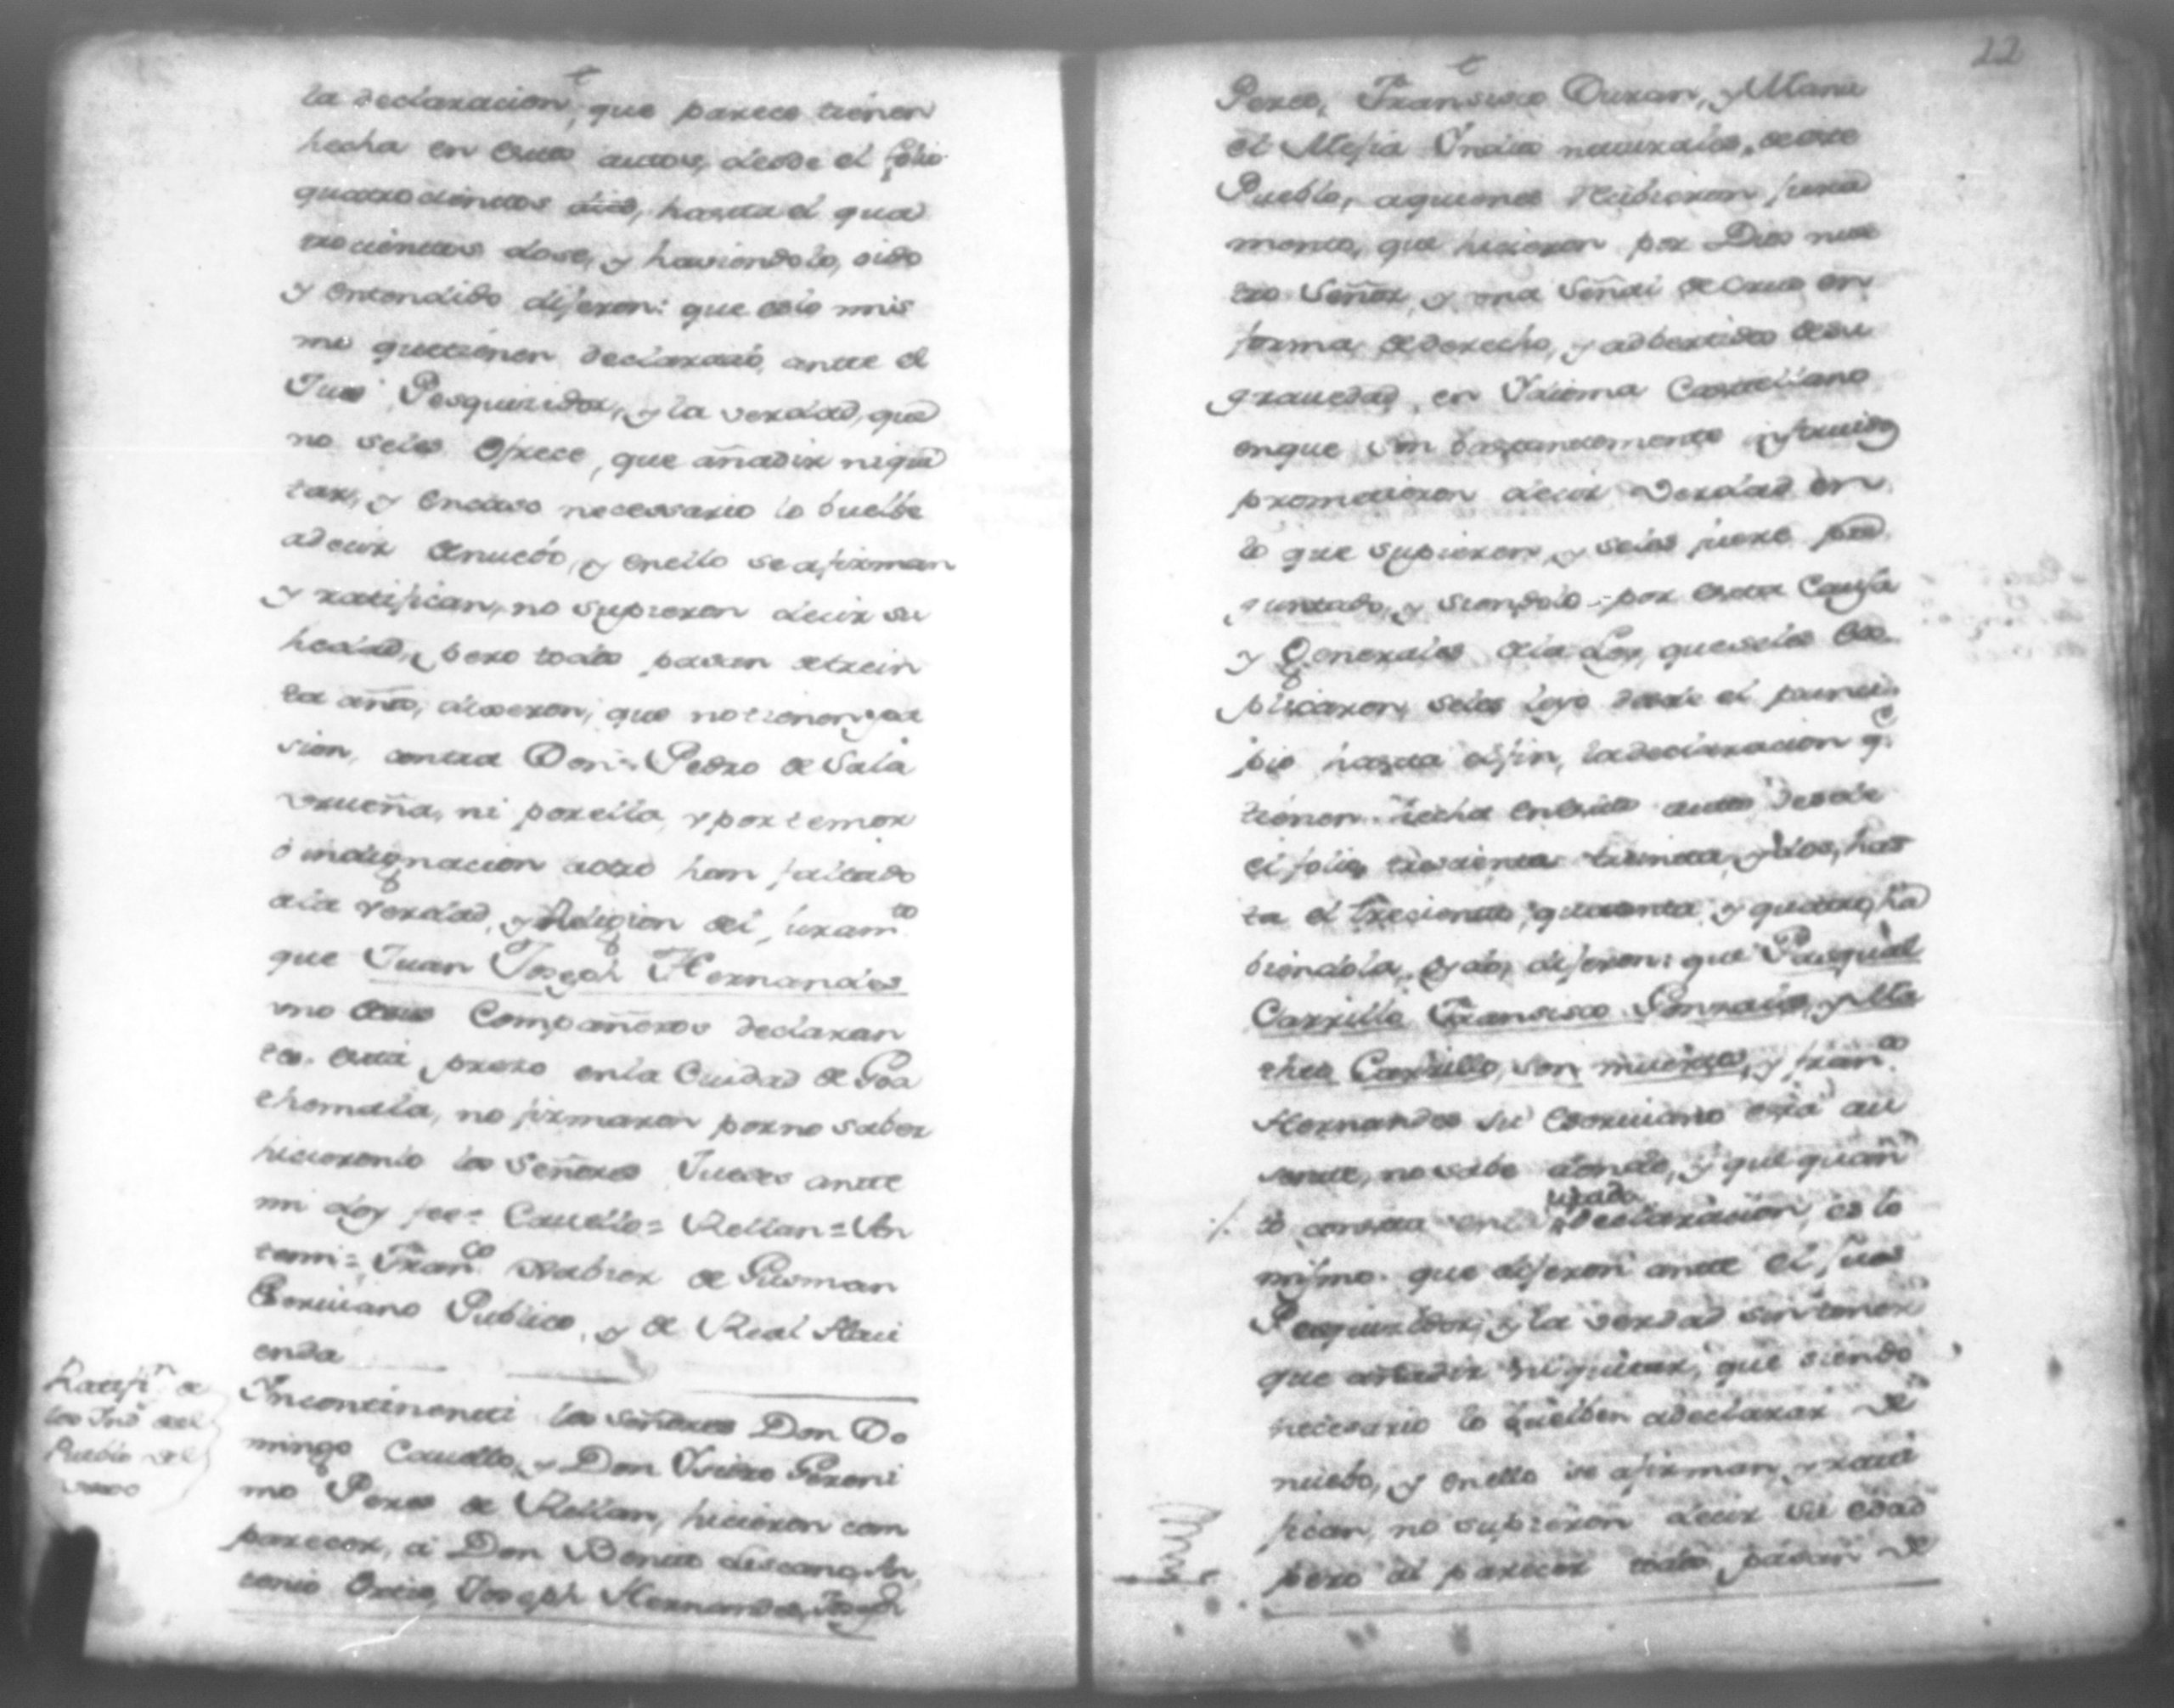 la declaracion, que parece tienen
hecha en estos autos, desde el folio
quatrocientos dies, hasta el qua
trocientos dose, y haviendolo, oido
y entendido dijeron: que eslo mis
mo quetienen declarado, antte el
Jues Pesquiridor, y la verdad, que
no seles Ofrece, que añadir niqui
tar, y encaso necessario lo buelbe
adecir denuebo, y enello seafirman
y ratifican, no supieron decir su
hedad, pero todos pasan detrein
ta años, dixeron, que notienen
sion, contra Don Pedro de Sala
verueña, ni porella, y portemor
ó indignacion aotro han faltado
ala verdad, y Religion del juramto
que Juan Joseph Hernandes
uno desus Compañeros declaran
tes. está preso enla Ciudad de Goa
themala, no firmaron porno saber
hicieronlo los Señores Jueses antte
mi doy fee= Cavello= Rellan= An
temi= Franco Xabier de Gusman
Escriuano Publico, y de Real Haci
enda
Ratifn de
los Inds del
Pueblo del
Incontinentti los señores Don Do
mingo Cavello, y Don Isidro Geroni
mo Peres de Rellan, hicieron com
parecer, á Don Benito Lescano, An
tonio Ortis, Joseph Hernandes, Joseph
22
Peres, Fransisco Duran, y Manu
el Mesia Indios naturales, deeste
Pueblo, aquienes recibieron jura
mento, que hicieron por Dios nues
tro Señor, y una Señal decrus en
forma dederecho, y adbertidos desu
gravedad, en Idioma Castellano
enque son bastantemente
prometieron decir verdad en
lo que supieren, y seles fuere pre
guntado, y siendolo por esta Causa
y Generales dela Ley, queseles es
plicaron, seles leyo desde el princi
pio hasta elfin, ladeclaracion q.
tienen hecha enestos autos desde
el folio, trescientos treinta, ydos, has
ta el trescientos, quarenta y quatro, ha
biendola, oydo, dijeron: que Pasqual
Carrillo Fransisco Gonzales, y Ma
theo Carrillo, son muertos, y Franco
Hernandes su Escriuano está au
sente, nosabe donde, y que quan
to consta enla declaracion, es lo
mismo que dijeron antte el Jues
Pesquiridor, y la verdad sintener
que añadir niquitar, que siendo
necesario lo buelben adeclarar de
nuebo, y enello se afirman, y rati
fican, no supieron decir su edad
pero al parecer todos pasan de